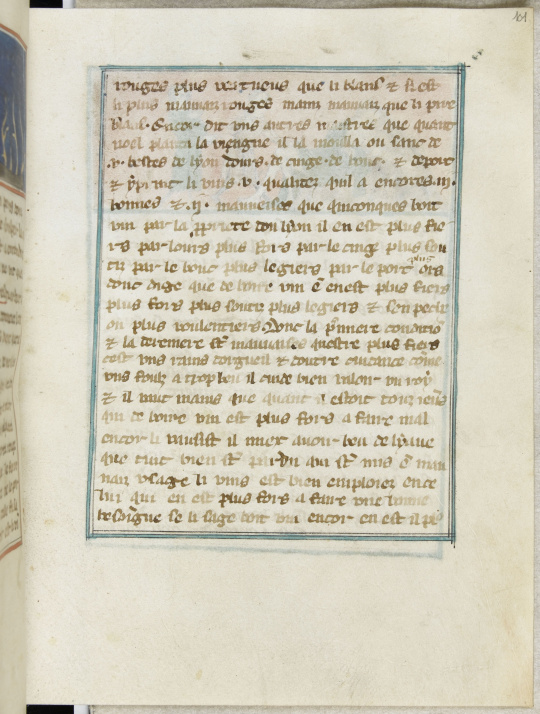 101
rouges plus vertueus que li blans & si est
li plus mauvais rouges mains mauvais que li pire
blanc. Encor dit uns autres que quant
noel planta la viengne il la moilla ou sanc de
.v. bestes de lyon dours. de cinge. de bouc. & de porc
& y prent li vins .v. qualitez quil a encores .iii.
bonnes & .ii. mauveises que quiconques boit
vin par la pprieté dou lyon il en est plus fie
rs par lours plus fors par le cinge plus sou
tis par le bouc plus legiers par le porc plus ors
donc cinge que de boire vin est plus fiers
plus fors plus soutis plus legiers & son pechie
ou plus voulentiers Donc la pmiere conditiō
& la derreniere sōt mauvaises questre plus fiers
cest uns vains dorgueil & doutre cuidance cōme
uns foulz a trop beu il cuide bien valoir un roy
& il vaut mains que quant il estoit touz ieuns
qui de boire vin est plus fors a faire mal
encor li vausist il miex avoir beu de lyaue
que tuit bien sōt pdu qui sōt mis ē mau
vaiz usage li vins est bien emploiez en ce
lui qui en est plus fors a faire une bonne
besoingne se li sage boit vin encor en est il pl